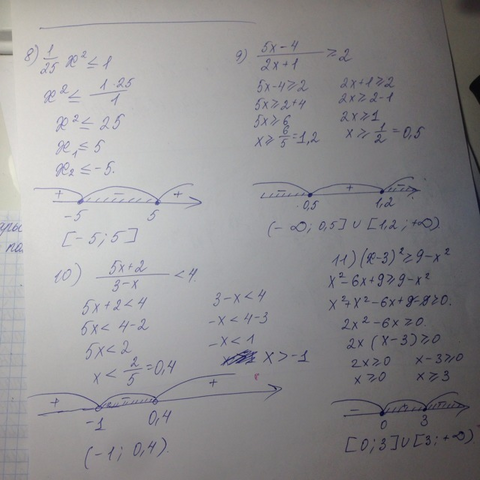 8) 1/25 x² ≤ 1
x² ≤ 1·25/1
x² ≤ 25
x₁ ≤ 5
x₂ ≤ -5.
+ - +
-5 5
[-5; 5]
9) 5x-4/2x+1 ≥ 2
5x-4≥2 2x+1≥2
5x≥2+4 2x≥2-1
5x≥6 2x≥1
x≥6/5=1,2 x≥1/2=0,5
- + -
0,5 1,2
(-∞; 0,5] ∪ [1,2; +∞)
10) 5x+2/3-x < 4
5x+2<4 3-x<4
5x<4-2 -x<4-3
5x<2 -x<1
x<2/5=0,4 x>-1
+ - +
-1 0,4
(-1; 0,4).
11) (x-3)²≥9-x²
x²-6x+9≥9-x²
x²+x²-6x+9-9≥0.
2x²-6x≥0.
2x(x-3)≥0
2x≥0 x-3≥0
x≥0 x≥3
0 3
[0;3]∪[3;+∞)